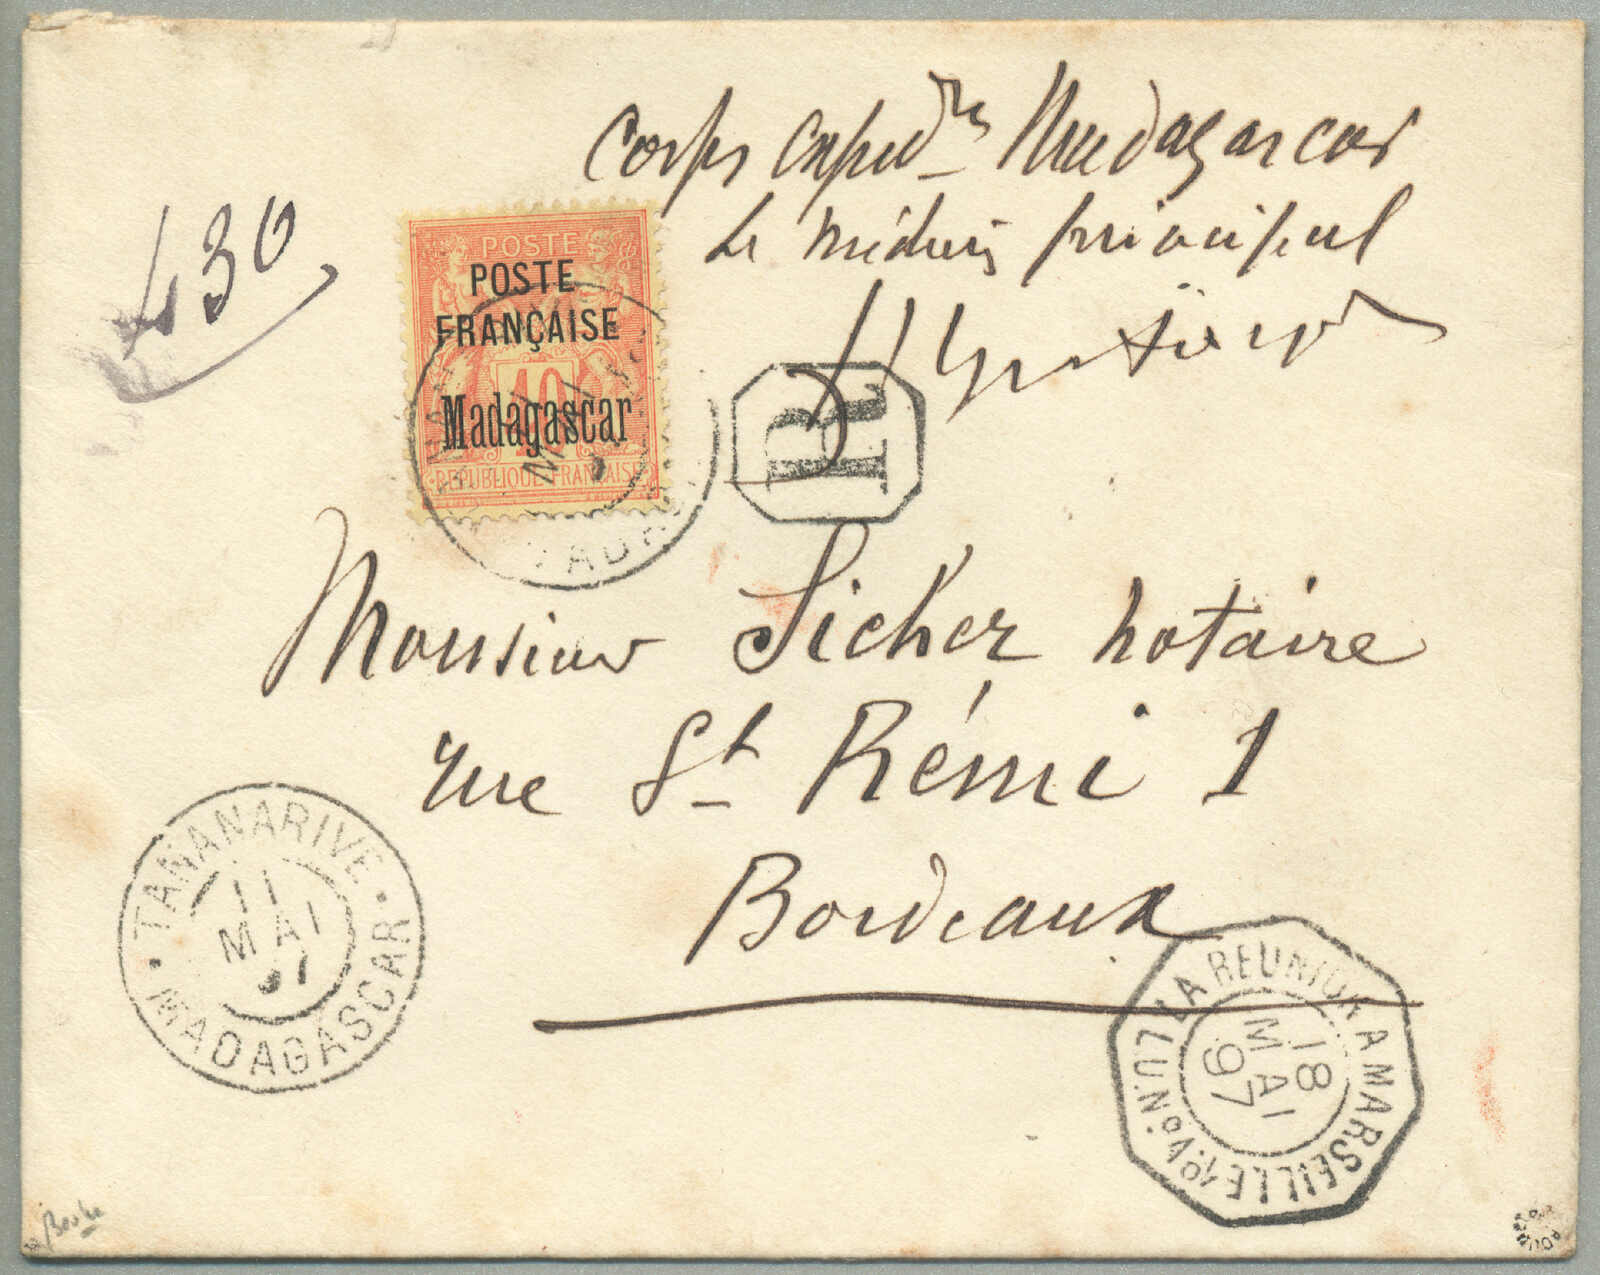 Corps expedre Madagascar
Le médecin principal
430
POSTE
POSTE
FRANÇAISE
40
Madagascar
REPUBLIQUE FRANCAISE
R
Monsieur Sicher notaire
rue St Rémi 1
Bordeaux
TANANARIVE
11
MAI
97
MADAGASCAR
LA REUNION A MARSEILLE
L.U. Nº
18
MAI
97